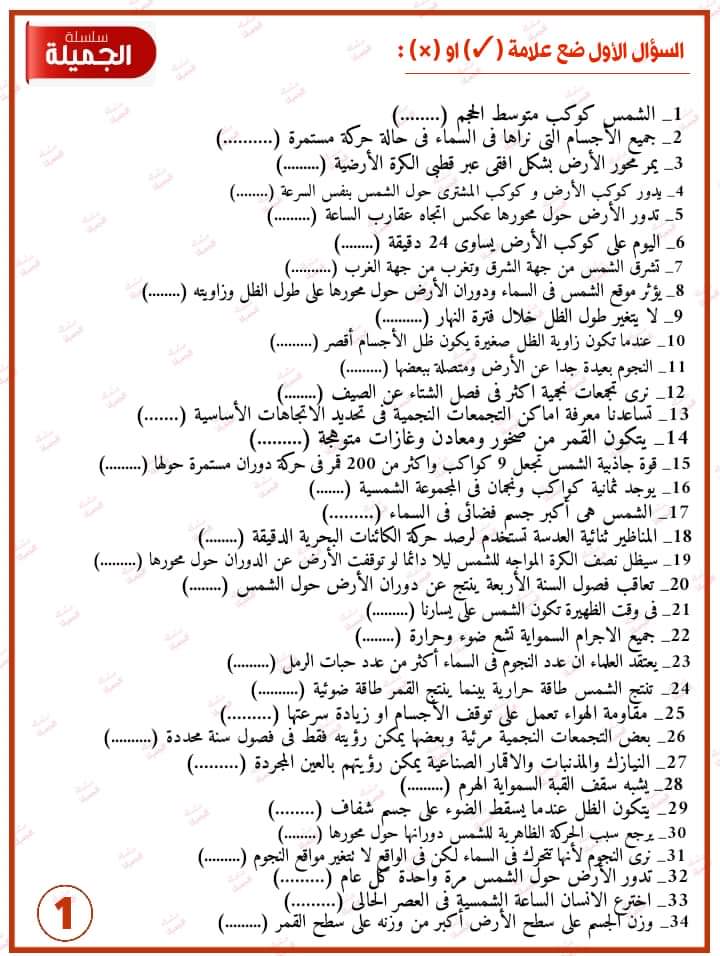 سلسلة
الجميلة
السؤال الأول ضع علامة (✓) او (×) :
1_ الشمس كوكب متوسط الحجم (........)
2_ جميع الأجسام التى نراها فى السماء فى حالة حركة مستمرة (..........)
3_ يمر محور الأرض بشكل افقى عبر قطبى الكرة الأرضية (.........)
4_ يدور كوكب الأرض و كوكب المشترى حول الشمس بنفس السرعة (........)
5_ تدور الأرض حول محورها عكس اتجاه عقارب الساعة (.........)
6_ اليوم على كوكب الأرض يساوى 24 دقيقة (........)
7_ تشرق الشمس من جهة الشرق وتغرب من جهة الغرب (..........)
8_ يؤثر موقع الشمس فى السماء ودوران الأرض حول محورها على طول الظل وزاويته (........)
9_ لا يتغير طول الظل خلال فترة النهار (..........)
10_ عندما تكون زاوية الظل صغيرة يكون ظل الأجسام أقصر (.........)
11_ النجوم بعيدة جدا عن الأرض ومتصلة ببعضها (.........)
12_ نرى تجمعات نجمية اكثر فى فصل الشتاء عن الصيف (........)
13_ تساعدنا معرفة اماكن التجمعات النجمية فى تحديد الاتجاهات الأساسية (.......)
14_ يتكون القمر من صخور ومعادن وغازات متوهجة (.........)
15_ قوة جاذبية الشمس تجعل 9 كواكب واكثر من 200 قمر فى حركة دوران مستمرة حولها (.........)
16_ يوجد ثمانية كواكب ونجمان فى المجموعة الشمسية (.......)
17_ الشمس هى أكبر جسم فضائى فى السماء (.........)
18_ المناظير ثنائية العدسة تستخدم لرصد حركة الكائنات البحرية الدقيقة (........)
19_ سيظل نصف الكرة المواجه للشمس ليلا دائما لو توقفت الأرض عن الدوران حول محورها (.........)
20_ تعاقب فصول السنة الأربعة ينتج عن دوران الأرض حول الشمس (........)
21_ فى وقت الظهيرة تكون الشمس على يسارنا (.........)
22_ جميع الاجرام السمواية تشع ضوء وحرارة (........)
23_ يعتقد العلماء ان عدد النجوم فى السماء أكثر من عدد حبات الرمل (.........)
24_ تنتج الشمس طاقة حرارية بينما ينتج القمر طاقة ضوئية (..........)
25_ مقاومة الهواء تعمل على توقف الأجسام او زيادة سرعتها (.........)
26_ بعض التجمعات النجمية مرئية وبعضها يمكن رؤيته فقط فى فصول سنة محددة (..........)
27_ النيازك والمذنبات والاقمار الصناعية يمكن رؤيتهم بالعين المجردة (.........)
28_ يشبه سقف القبة السمواية الهرم (.........)
29_ يتكون الظل عندما يسقط الضوء على جسم شفاف (........)
30_ يرجع سبب الحركة الظاهرية للشمس دورانها حول محورها (........)
31_ نرى النجوم لأنها تتحرك فى السماء لكن فى الواقع لا تتغير مواقع النجوم (.........)
32_ تدور الأرض حول الشمس مرة واحدة كل عام (.........)
33_ اخترع الانسان الساعة الشمسية فى العصر الحالى (.........)
34_ وزن الجسم على سطح الأرض أكبر من وزنه على سطح القمر (.........)
1